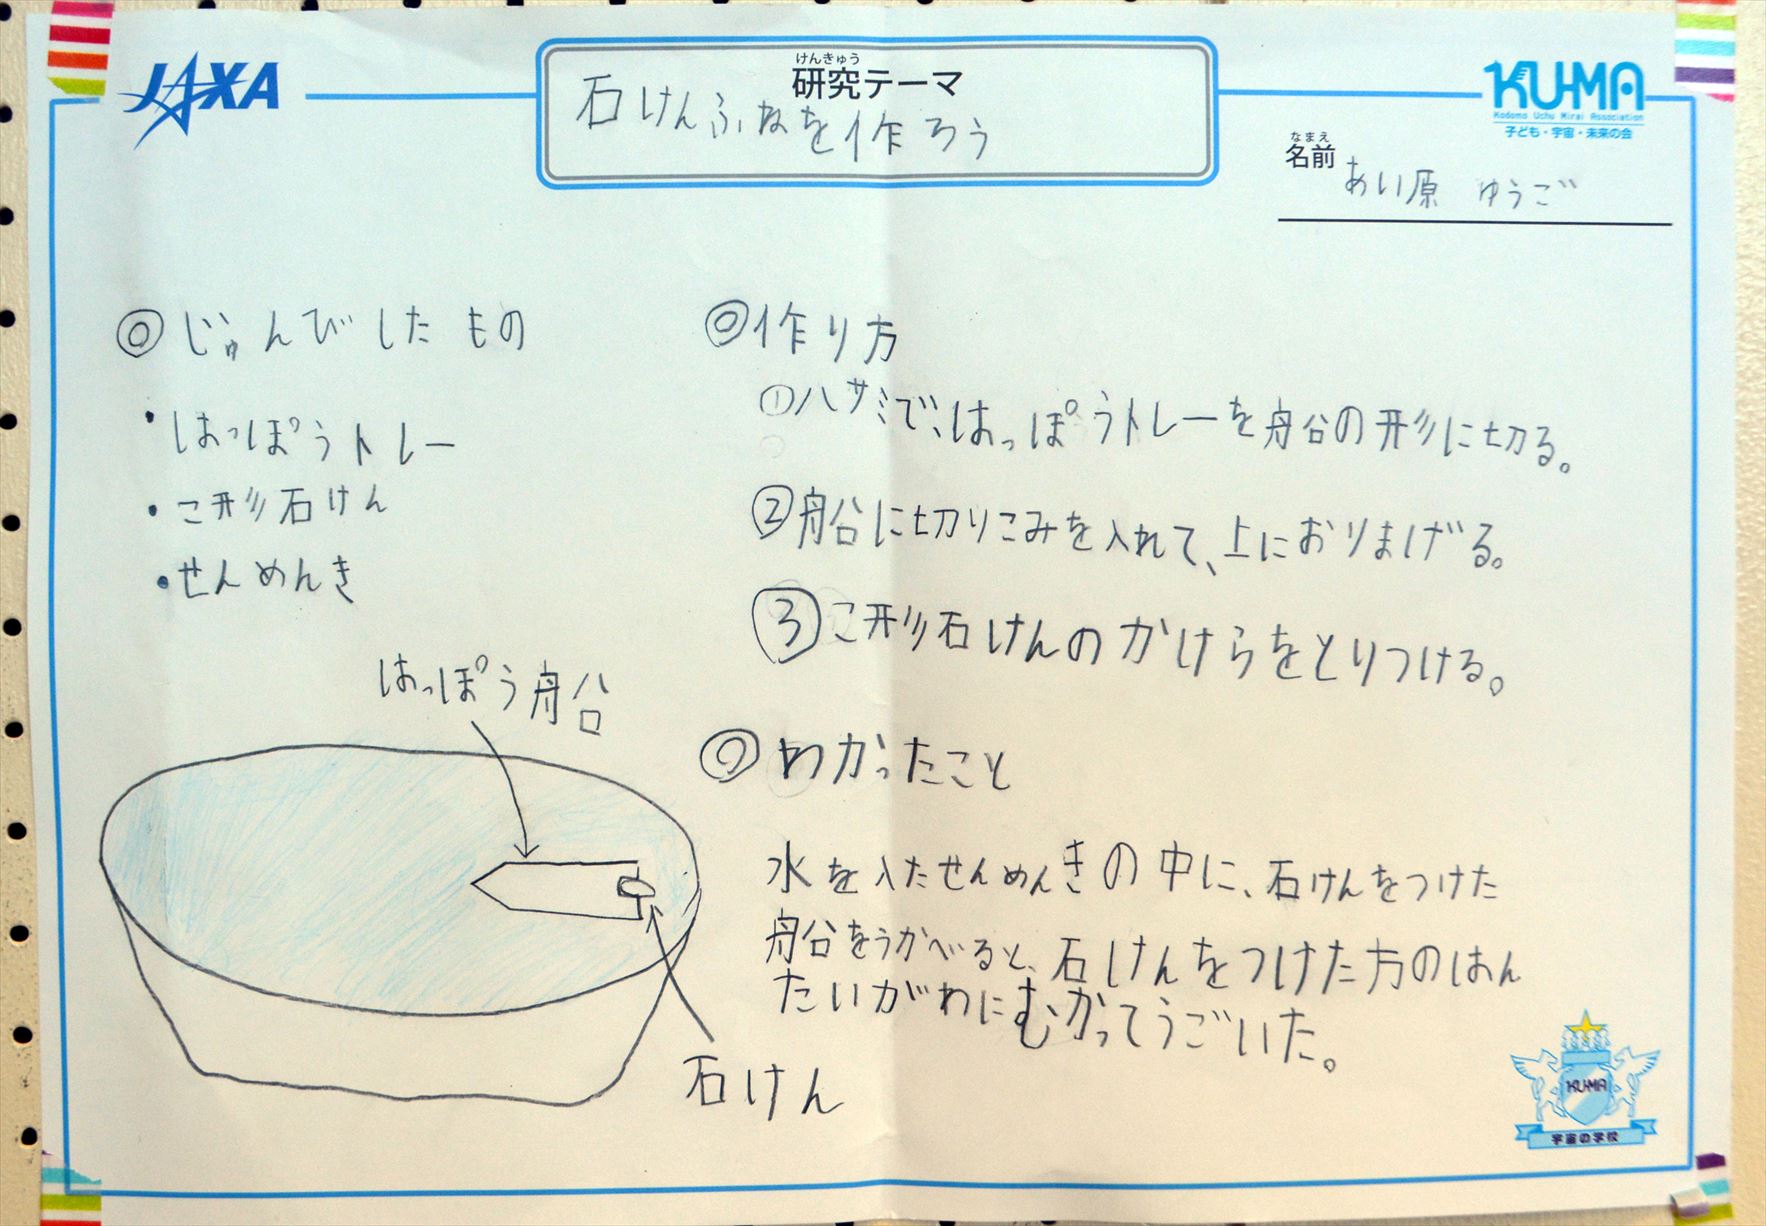 JAXA
けんきゅう
研究テーマ
石けんふねを作ろう
KU-MA
Kodomo Uchu Mirai Association
子ども・宇宙・未来の会
なまえ
名前
あい原 ゆうご
◎じゅんびしたもの
・はっぽうトレー
・こ形石けん
・せんめんき
はっぽう船
石けん
◎作り方
①ハサミで、はっぽうトレーを船の形に切る。
②船に切りこみを入れて、上におりまげる。
③こ形石けんのかけらをとりつける。
◎わかったこと
水を入たせんめんきの中に、石けんをつけた
船をうかべると、石けんをつけた方のはん
たいがわにむかってうごいた。
KU-MA
宇宙の学校